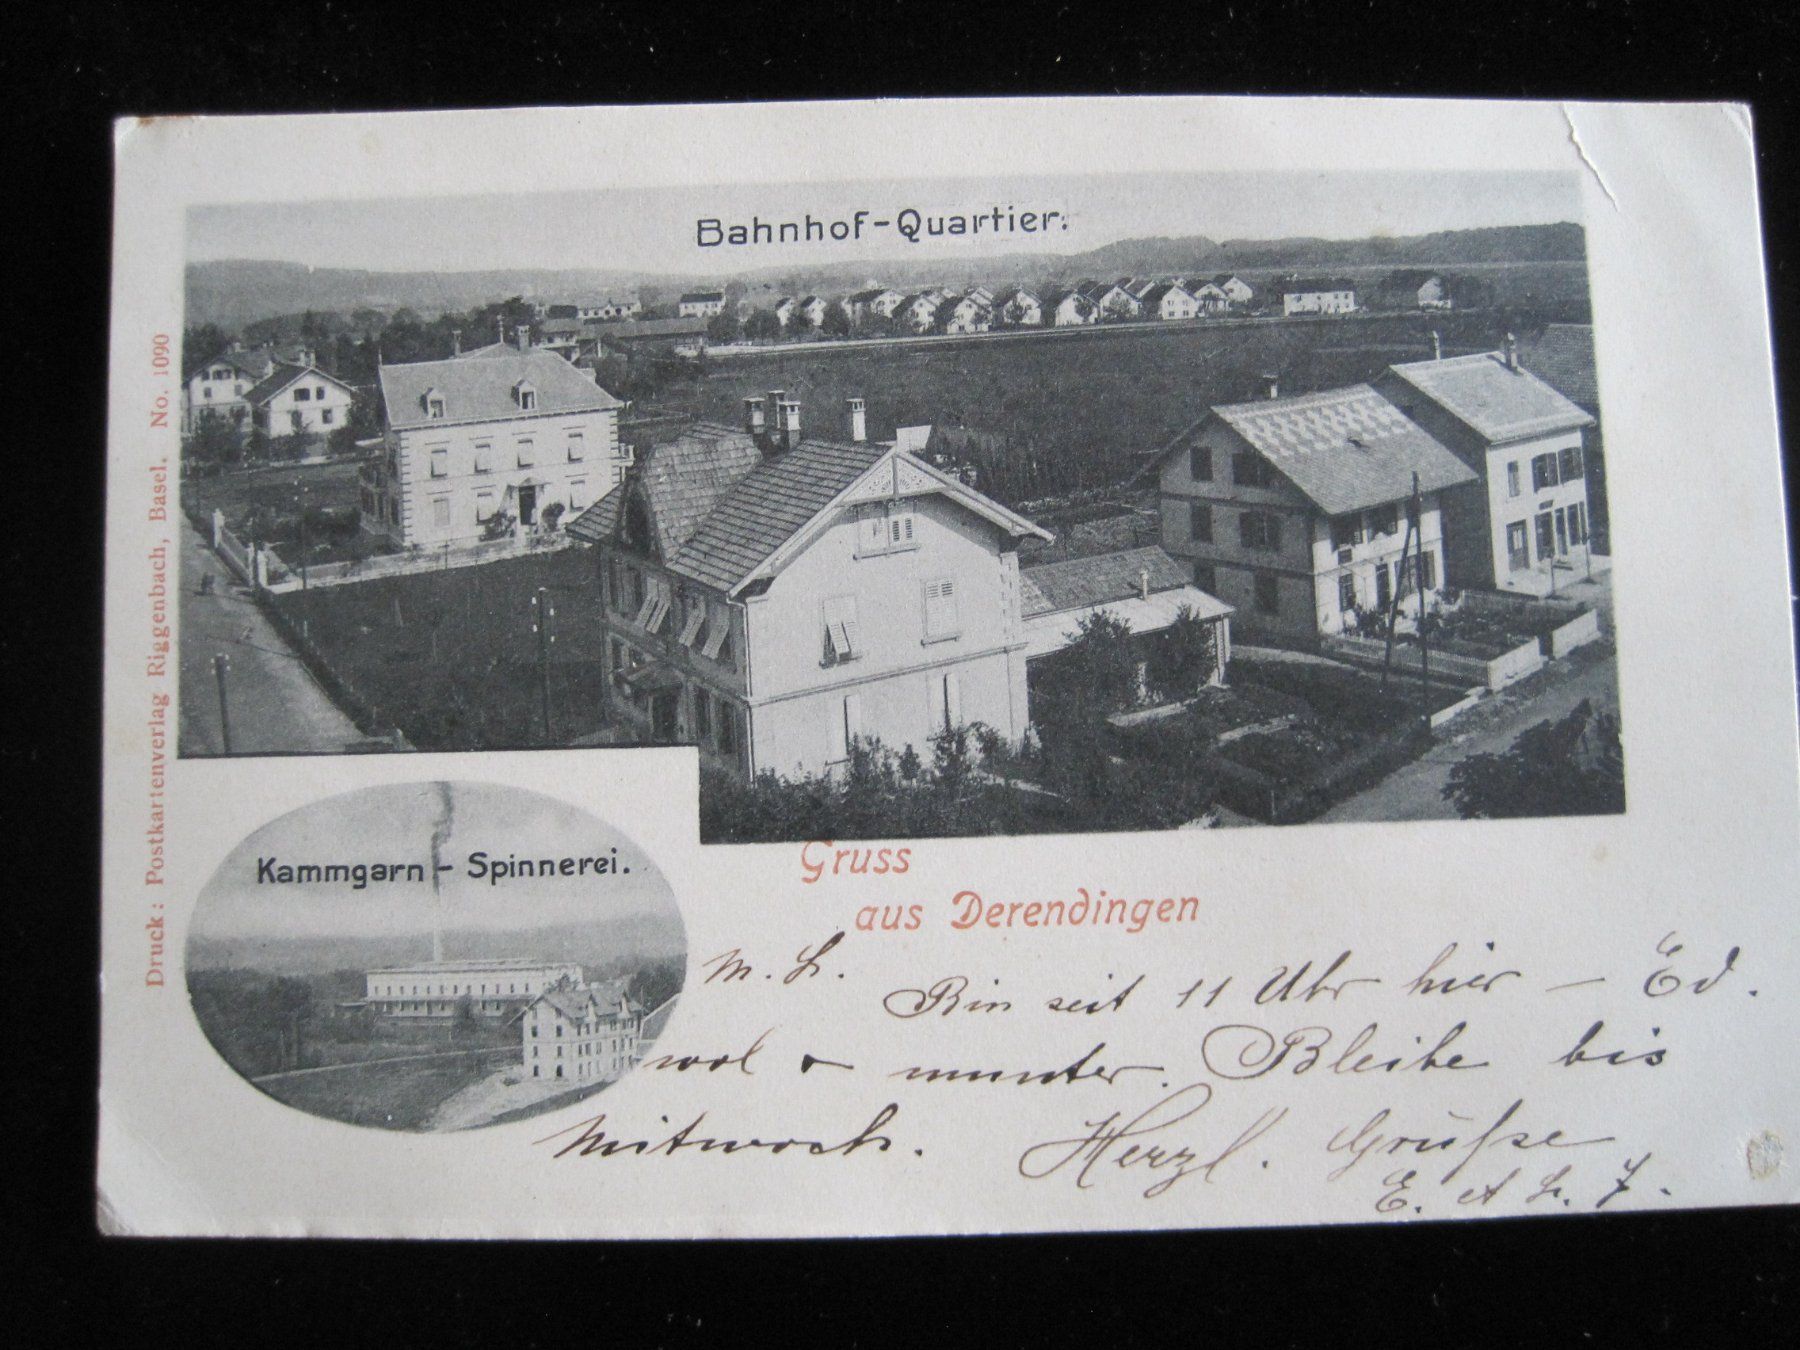 Bahnhof-Quartier.
Druck: Postkartenverlag Riggenbach, Basel. No. 1090
Kammgarn-Spinnerei.
Gruss
aus Derendingen
M. L.
Bin seit 11 Uhr hier – Ed.
wol & munter. Bleibe bis
Mittwoch. Herzl. Grüsse
E. et L.